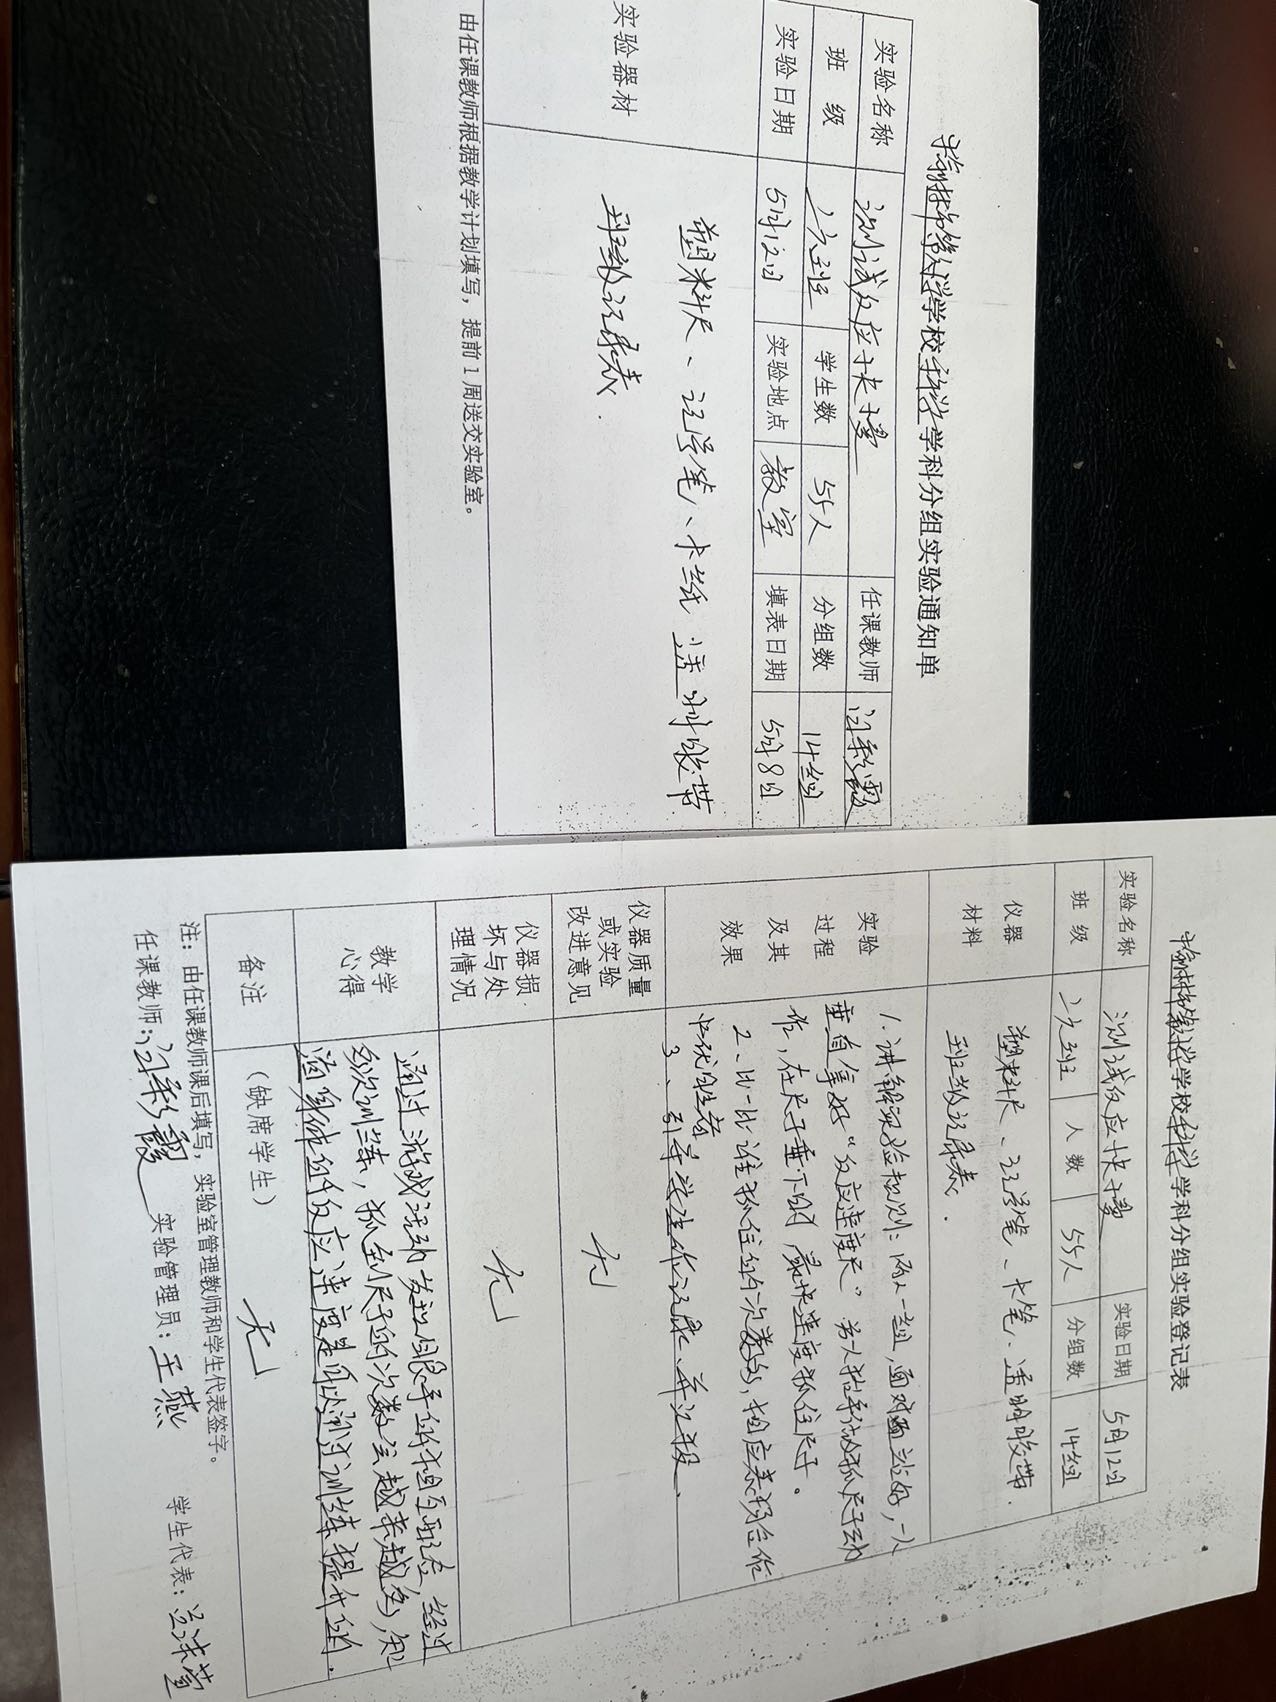 学校科学学科分组实验通知单
实验名称 测试反应快慢 任课教师
班 级 二六班 学生数 55人 分组数 14组
实验日期 5月12日 实验地点 教室 填表日期 5月8日
实验器材
塑料尺、记号笔、卡纸、透明胶带
班级记录表.
由任课教师根据教学计划填写，提前1周送交实验室。
学校科学学科分组实验登记表
实验名称 测试反应快慢 实验日期 5月12日
班 级 二六班 人 数 55人 分组数 14组
仪器材料
塑料尺、记号笔、卡笔、透明胶带.
班级记录表.
实验过程及其效果
1.讲解实验规则：两人一组,面对面站好,一人
垂直拿好“反应速度尺”另人抓尺子动
作,在尺子垂下时,最快速度抓住尺子。
2、比一比谁抓住的次数多,相应表扬合作
中优胜者
3、引导学生作记录、并汇报、
仪器质量或实验改进意见 无
仪器损坏与处理情况 无
教学心得
通过游戏活动发现眼手的相互联结,经过
多次训练,抓到尺子的次数会越来越多,知
道身体的反应速度是可以通过训练提升的.
备注 （缺席学生） 无
注：由任课教师课后填写，实验室管理教师和学生代表签字。
任课教师： 实验管理员：王燕 学生代表：